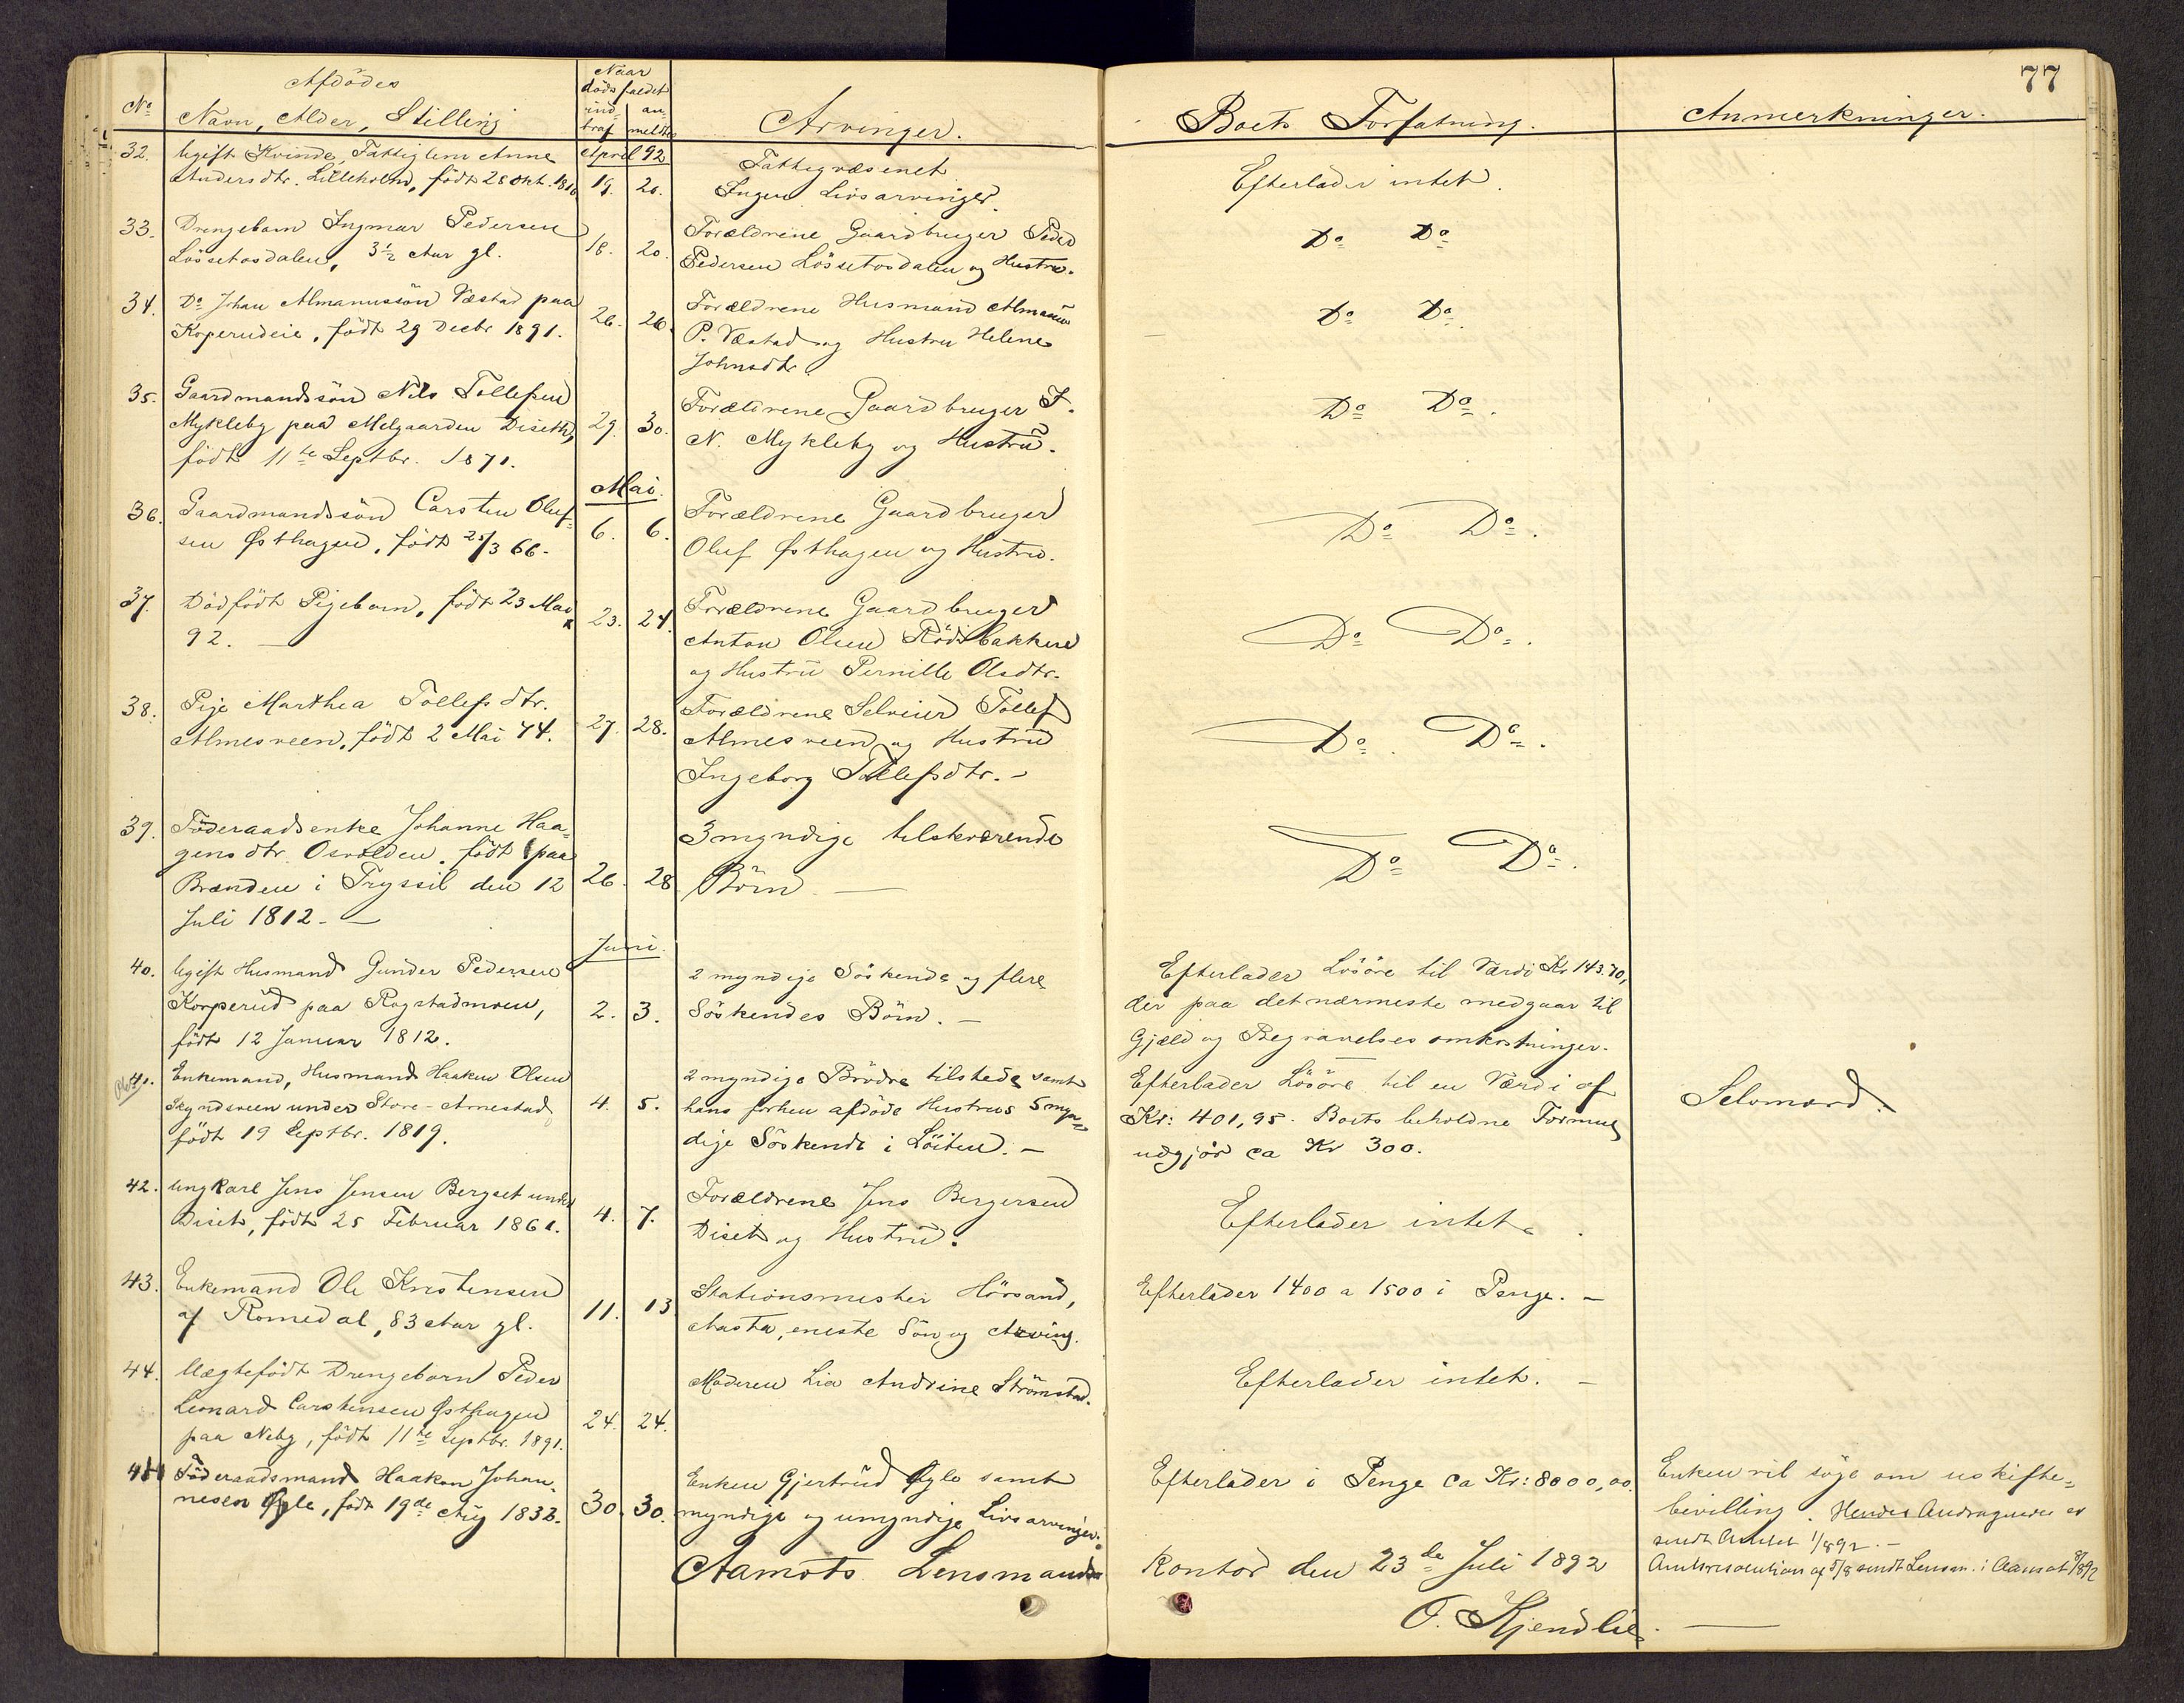 77
Afdödes
No Navn, Alder, Stilling
Naar dödsfaldet
ind- traf | an- meldt
Arvinger.
Boets Forfatning.
Anmerkninger.
April 92
32. Ugift Kvinde, Fattiglem Anne
Andersdtr. Lilleholmd, födt 28 Okt. 1816
19. 20.
Fattigvæsenet
Ingen Livsarvinger.
Efterlader intet.
33. Drengebarn Ingmar Pedersen
Lössetosdalen, 3½ Aar gl.
18. 20.
Forældrene Gaardbruger Peder
Pedersen Lössetosdalen og Hustru.
Do Do
34. Do Johan Almanussön Væstad paa
Koperudeie, födt 29 Decbr 1891.
26. 26.
Forældrene Husmand Almanus
P. Væstad og Hustru Helene
Johnsdtr.
Do Do.
35. Gaardmandssön Nils Tollefsen
Mykleby paa Melgaarden Diseth,
födt 11te Septbr. 1871.
29. 30.
Forældrene Gaardbruger T.
N. Mykleby og Hustru.
Do Do.
Mai.
36. Gaardmandssön Carsten Oluf-
sen Østhagen, födt 25/3 66.
6. 6.
Forældrene Gaardbruger
Oluf Østhagen og Hustru.
Do Do.
37. Dödfödt Pigebarn, födt 23 Mai
92. —
23. 24.
Forældrene Gaardbruger
Anton Olsen Rödsbakken
og Hustru Pernille Olsdtr.
Do Do.
38. Pige Marthea Tollefsdtr.
Almesveen, födt 2 Mai 74.
27. 28.
Forældrene Selveier Tollef
Almesveen og Hustru
Ingeborg Tollefsdtr. -
Do. Do.
39. Föderaadsenke Johanne Haa-
gensdtr. Osvolden, födt paa
Brænden i Tryssil den 12
Juli 1812. —
26. 28
3 myndige tilstedeværende
Börn. —
Do Do.
Juni.
40. Ugift Husmand Gunder Pedersen
Korperud paa Rogstadmoen,
födt 12 Januar 1812.
2. 3.
2 myndige Söskende og flere
Söskendes Börn. —
Efterlader Lösöre til Værdi Kr 143.70,
der paa det nærmeste medgaar til
Gjæld og Begravelsesomkostninger.
41. Enkemand, Husmand Haaken Olsen
Skyndsveen under Store-Arnestad
födt 19 Septbr. 1819.
4. 5.
2 myndige Brödre tilstede samt
hans forhen afdöde Hustrus 5 myn-
dige Söskende i Löiten. —
Efterlader Lösöre til en Værdi af
Kr: 401,95. Boets beholdne Formue
udgjör ca Kr 300.
Selvmord.
42. Ungkarl Jens Jensen Bergset under
Diset, födt 25 Februar 1861.
4. 7.
Forældrene Jens Bergersen
Diset og Hustru.
Efterlader intet.
43. Enkemand Ole Kristensen
af Romedal, 83 Aar gl.
11. 13
Stationsmester Hörsand,
Aasta, eneste Sön og Arving.
Efterlader 1400 a 1500 i Penge. —
44. Uægtefödt Drengebarn Peder
Leonard Carstensen Østhagen
paa Neby, födt 11te Septbr. 1891.
24. 24.
Moderen Lia Andrine Strömstad.
Efterlader intet. —
Föderaadsmand Haakon Johan-
nesen Øgle, födt 19de Aug 1832.
30. 30.
Enken Gjertrud Øgle samt
myndige og umyndige Livsarvinger.
Efterlader i Penge ca Kr: 8000,00.
Enken vil söge om uskifte-
bevilling. Hendes Andragende er
sendt Amtet 1/8 92. —
Amtsresolution af 5/8 sendt Lensm. i Aamot 8/8 92
Aamots Lensmands Kontor den 23de Juli 1892
O. Kjendlie.